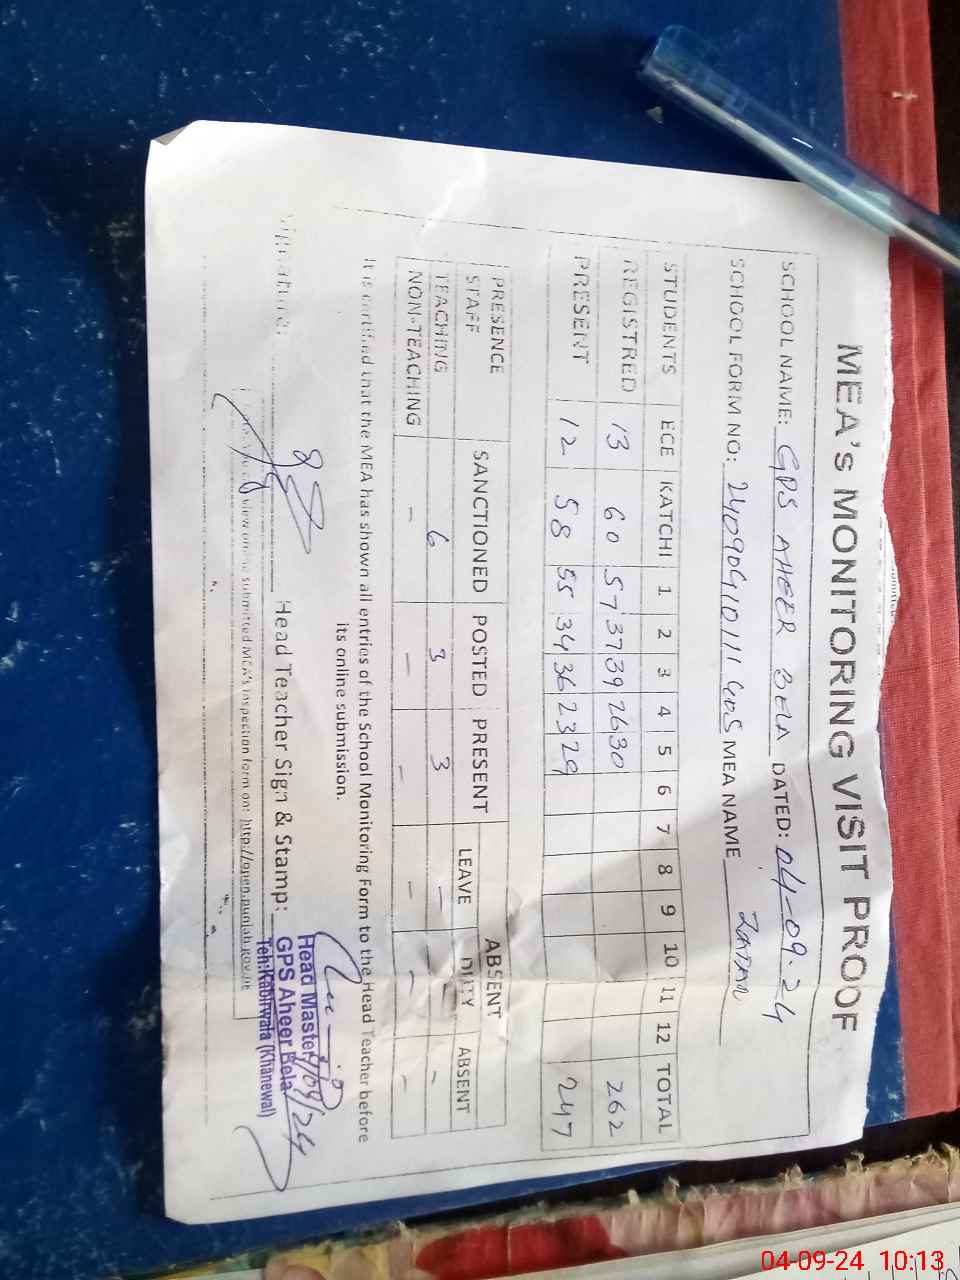 MEA's MONITORING VISIT PROOF
SCHOOL NAME: GPS AHEER BELA DATED: 04-09-24
SCHOOL FORM NO: MEA NAME
STUDENTS ECE KATCHI 1 2 3 4 5 6 7 8 9 10 11 12 TOTAL
REGISTRED 13 60 57 37 39 26 30 262
PRESENT 12 58 55 34 36 23 29 247
PRESENCE STAFF SANCTIONED POSTED PRESENT ABSENT
LEAVE DUTY ABSENT
TEACHING 6 3 3 - - -
NON-TEACHING - - - - - -
It is certified that the MEA has shown all entries of the School Monitoring Form to the Head Teacher before
its online submission.
Signature: Head Teacher Sign & Stamp:
Head Master
GPS Aheer Bela
Teh: Kabirwala (Khanewal)
view online submitted MEA's inspection form on: http://open.punjab.gov.pk
submitted
04-09-24 10:13